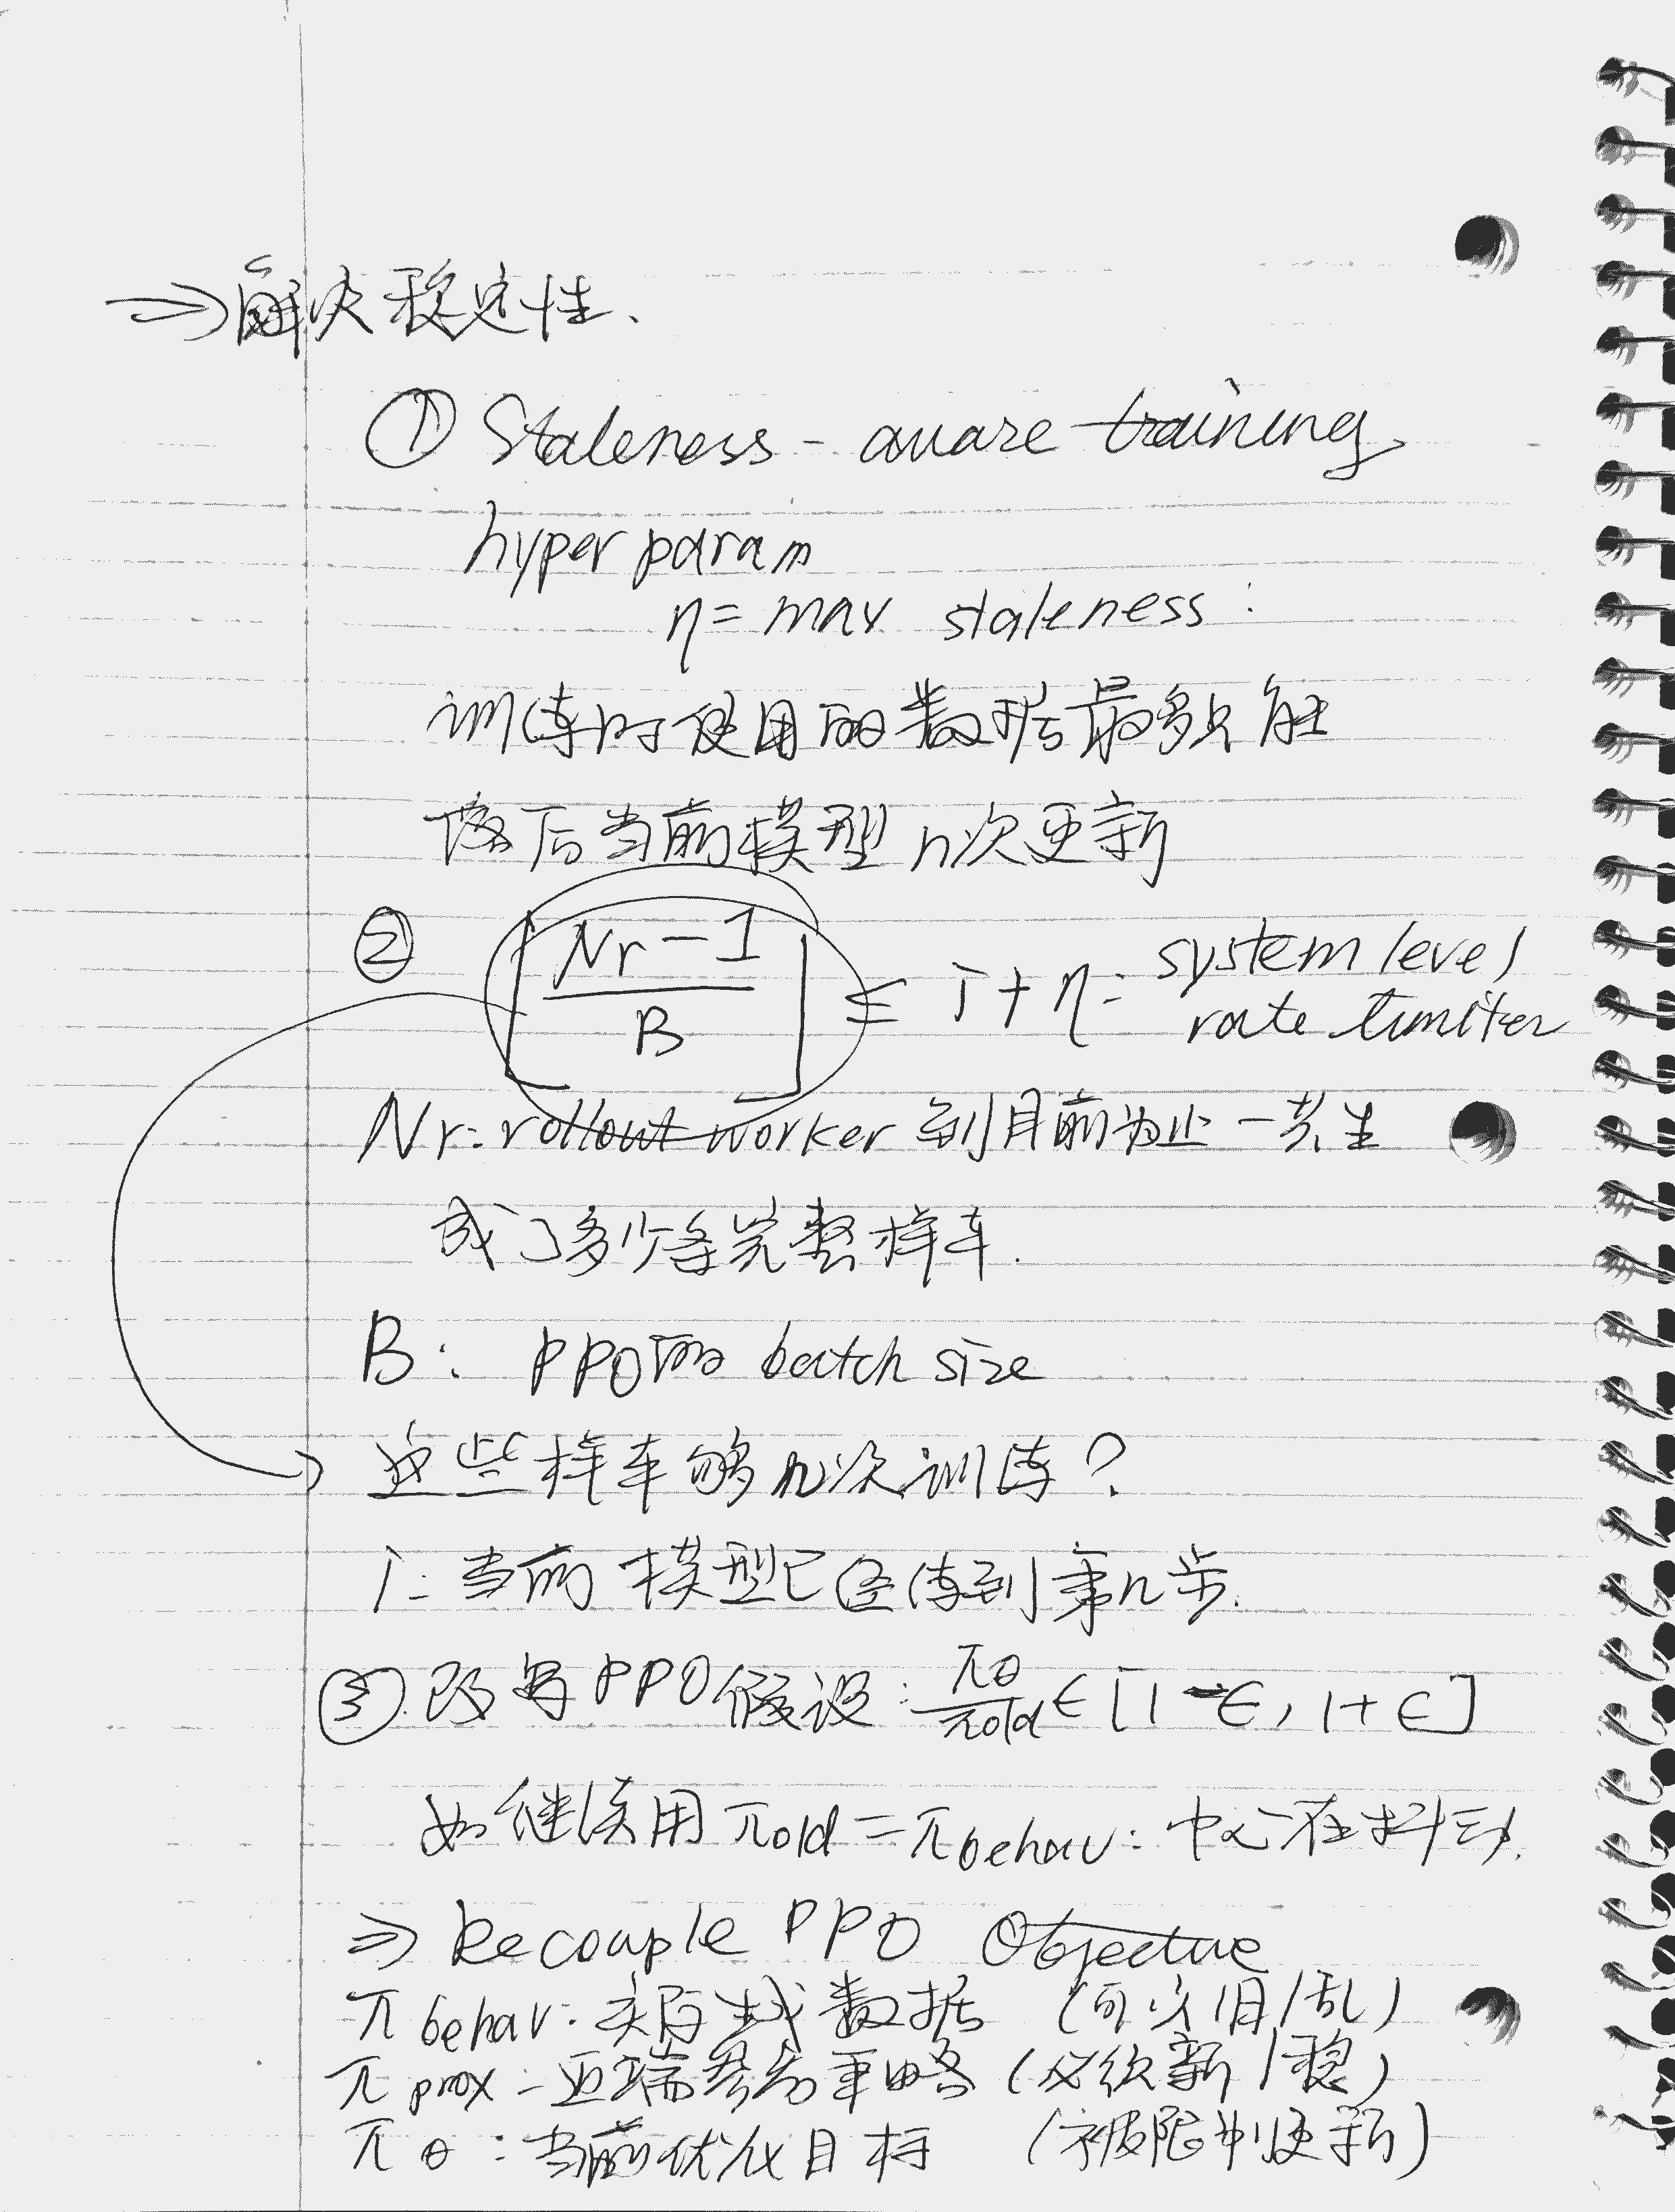 ⇒解决稳定性、
① Staleness-aware training
hyper param
η = max staleness :
训练时使用的数据最多只能
落后当前模型 n次更新
② ⌊(Nr-1)/B⌋ ≤ i + η : system level
rate limiter
Nr: rollout worker 到目前为止一共生
成了多少条完整样本.
B: PPO的 batch size
这些样本够几次训练?
i: 当前模型已经练到第几步.
③ 改写PPO假设: πθ/πold ∈ [1-ϵ, 1+ϵ]
如继续用 πold = πbehav: 中心在抖动.
⇒ Decouple PPO Objective
π behav: 实际生成数据 (可以旧/乱)
π prox: 近端参考策略 (必须新/稳)
π θ : 当前优化目标 (被限制更新)